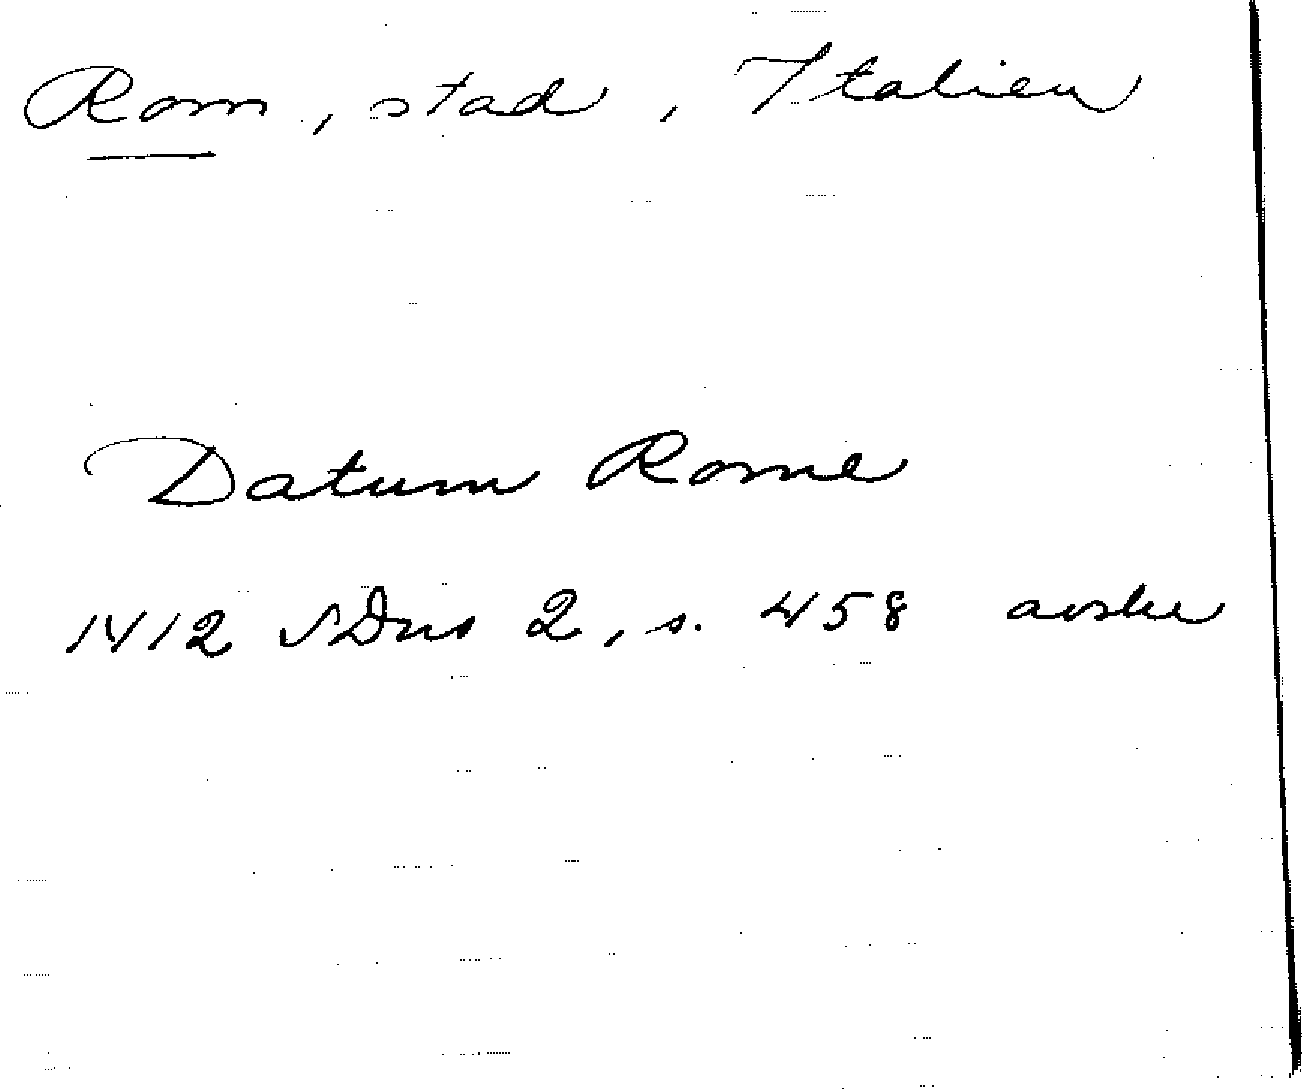 Rom, stad, Italien
Datum Rome
1412 SDns 2, s. 458 avskr